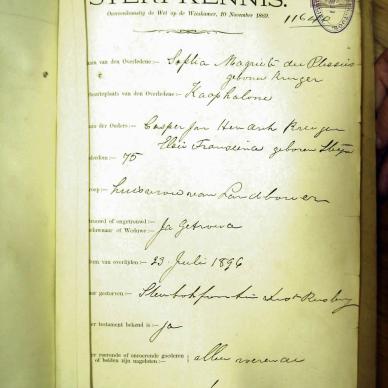 STERFKENNIS.
Overeenkomstig de Wet op de Weeskamer, 10 November 1869.
11640
aam van den Overledene:— Sophia du Plessis
geboren Kruger
eboorteplaats van den Overledene:—
am der Ouders:— Casper Jan Hendrik Kruger
Francina geboren Steyn
uderdom:— 75
eroep:— huisvrouw van Landbouwer
trouwd of ongetrouwd:—
dewnaar of Weduwe:— Ja
tum van overlijden:— 23 Juli 1896
aar gestorven:— Steenbokfontein dist Rusburg
er testament bekend is:— ja
er roerende of onroerende goederen
of beiden zijn nagelaten:— alleen roerende